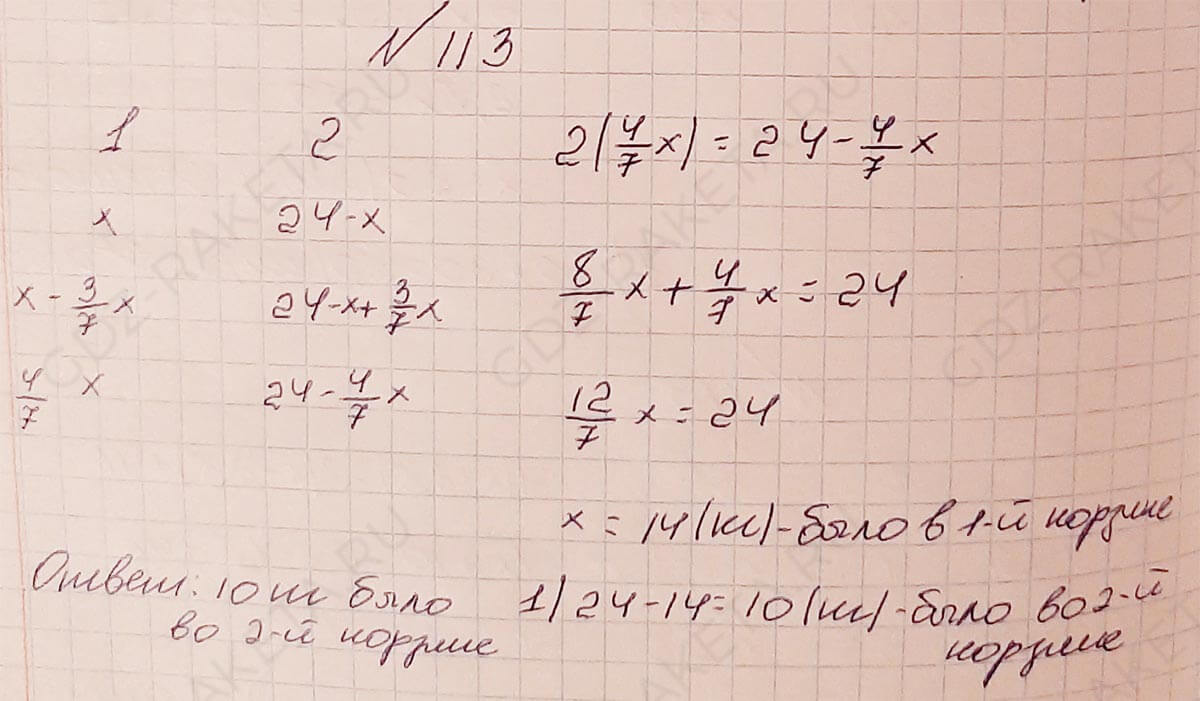 № 113
1 2 2(4/7 x) = 24 - 4/7 x
x 24-x
x - 3/7 x 24-x+ 3/7 x 8/7 x + 4/7 x = 24
4/7 x 24 - 4/7 x 12/7 x = 24
x = 14 (кг) - было в 1-й корзине
Ответ: 10 кг было 1) 24-14=10 (кг) - было во 2-й
во 2-й корзине корзине
GDZ-RAKETA.RU